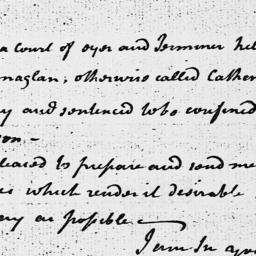 a Court of oyer and Terminer hel
naglan, otherwise called Cather
ny and sentenced to be confined
on —
leased to prepare and send me
es which render it desirable
ny as possible —
I am Sr you